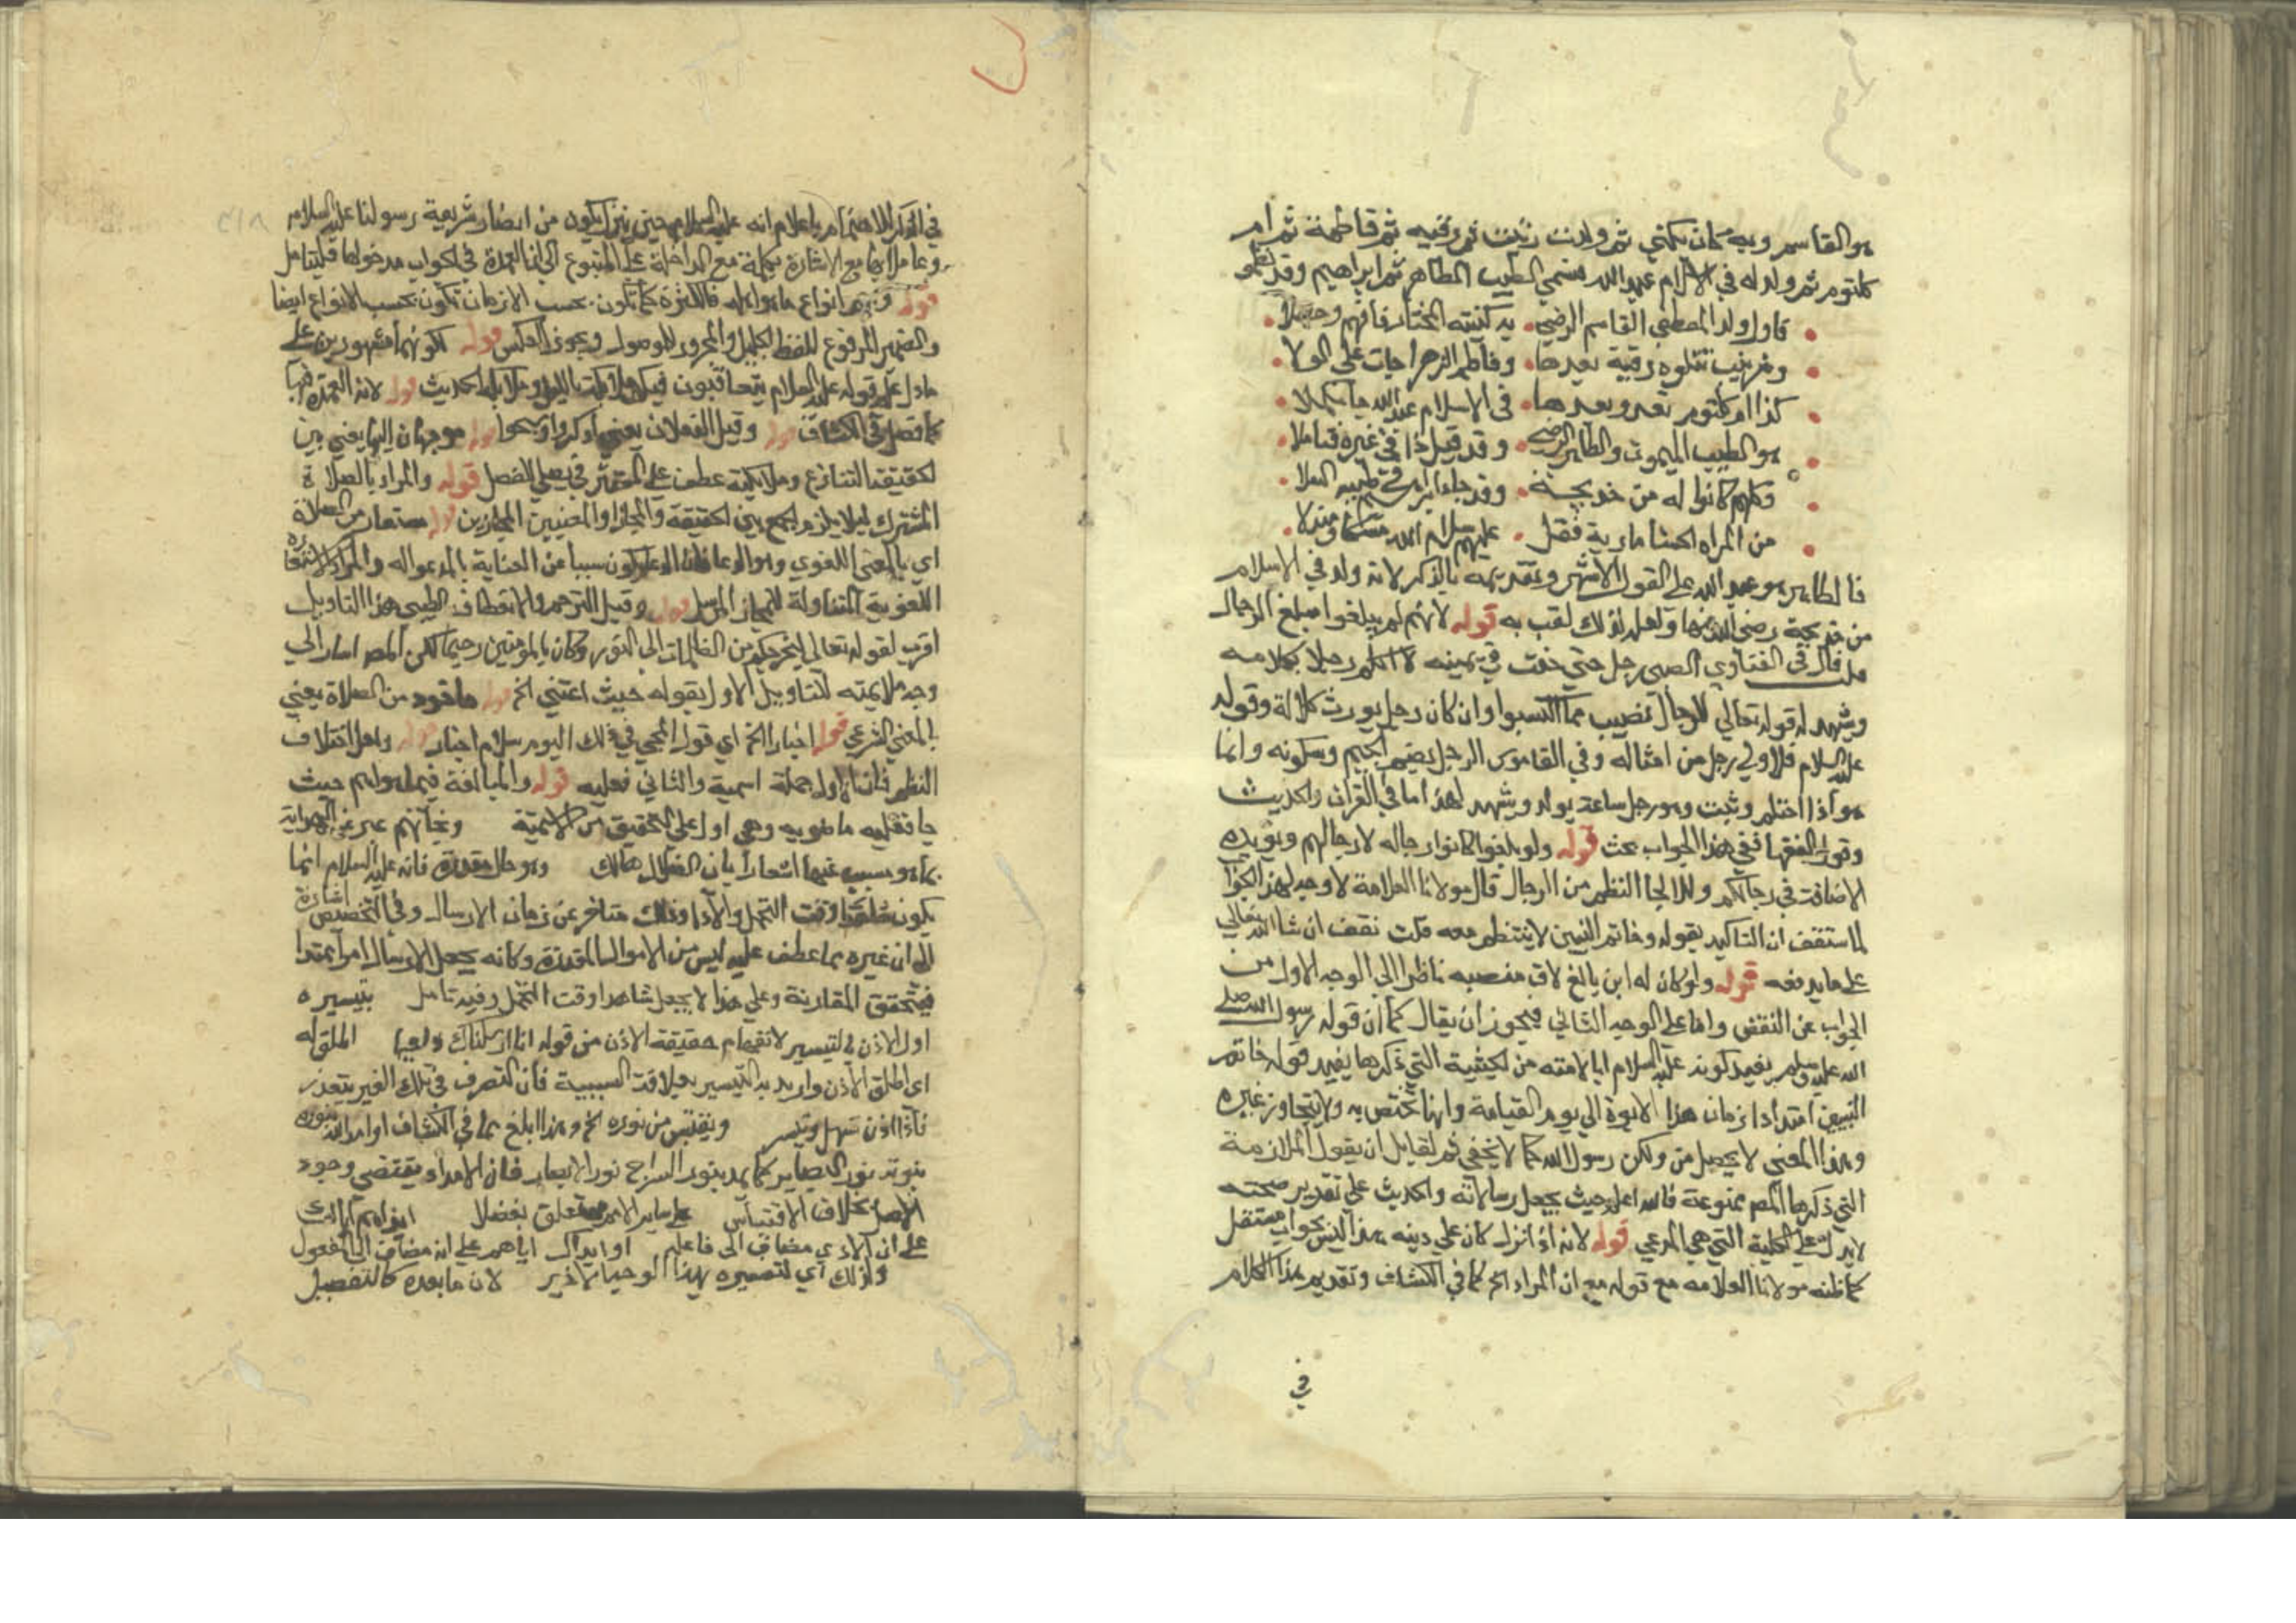 هو القاسم وبه كان يكنى ثم ولدت زينب ثم رقيه ثم فاطمة ثم ام
كلثوم ثم ولد له في الاسلام عبد الله فسمي الطيب الطاهر ثم ابراهيم وقد نظموا
فاول ولد المصطفى القاسم الرضي به كنيته المختار فافهم وحصلا
وزينب تتلوه رقية بعدها وفاطم الزهرا جات على الولا
كذا ام كلثوم تعد وبعدها في الاسلام عبد الله جا مكملا
هو الطيب الميمون والطاهر الرضي وقد قيل ذا في غيره فتاملا
وكلهم كانوا له من خديجة وقد جا ابراهيم في طيبه العلا
من المراه الحسنا مارية فقل عليهم سلام الله مسكا ومندلا
فالطاهر هو عبد الله على القول الاشهر وتقديمه بالذكر لانه ولد في الاسلام
من خديجة رضي الله عنها ولعله لذلك لقب به قوله لانهم لم يبلغوا مبلغ الرجال
قال في الفتاوي الصبي رجل حتى حنث في يمينه لا اكلم رجلا بكلامه
ويشهد له قوله تعالي للرجال نصيب مما اكتسبوا وان كان رجل يورث كلالة وقوله
عليه السلام فلاولي رجل من امثاله وفي القاموس الرجل بضم الجيم وسكونه وانما
هو اذا احتلم وشب وهو رجل ساعة يولد ويشهد لهذا ما في القران والحديث
وقول الفقها ففي هذا الجواب بحث قوله ولو بلغوا كانوا رجاله لا رجالهم ويؤيده
الاضافت في رجالكم والا لجا النظم من الرجال قال مولانا العلامة لا وجه لهذا الجواب
لما ستقف ان التاكيد بقوله وخاتم النبيين لا ينتظم معه قلت نقف ان شا الله تعالي
على ما يدفعه قوله ولو كان له ابن بالغ لاق منصبه ناظرا الي الوجه الاول من
الجواب عن النقض واما على الوجه الثاني فيجوز ان يقال كما ان قوله رسول الله صلي
الله عليه وسلم يفيد كونه عليه السلام ابا لامته من الحيثية التي ذكرها يفيد قوله خاتم
النبيين امتداد زمان هذا الابوة الي يوم القيامة وانها تختص به ولا يتجاوز غيره
وهذا المعنى لا يحصل من ولكن رسول الله كما لا يخفي ثم لقايل ان يقول الملازمة
التي ذكرها المصم ممنوعة فالله اعلم حيث يجعل رسالاته والحديث علي تقدير صحته
لا يدل على الكلية التي هي المدعي قوله لانه اذا نزل كان علي دينه هذا ليس بجواب مستقل
كما ظنه مولانا العلامه مع قوله مع ان المراد الخ كما في الكشاف وتقديم هذا الكلام
في
عليه السلام حين ينزل يكون من انصار شريعة رسولنا عليه السلام
مع الاشارة بكلمة مع الداخلة على المتبوع الي انها العمدة في الجواب مدخولها فليتامل
قوله انواع ما هو اهله فالكثرة كما تكون بحسب الازمان تكون بحسب الانواع ايضا
والضمير المرفوع للفظ الجليل والمجرور للموصول ويجوز العكس قوله لكونهما مشهودين على
ما دل عليه قوله عليه السلام يتعاقبون فيكم ملائكة بالليل وملائكة الحديث قوله لانه العمدة فيها
كما فصل في الكشاف قوله وقيل الفعلان يعني اذكروا وسبحوا قوله موجهان اليها يعني من
لحقيقة التنازع وملائكته عطف على المستتر في يصلي للفصل قوله والمراد بالصلاة
المشترك ليلا يلزم الجمع بين الحقيقة والمجاز او المعنيين المجازين قوله مستعار من الصلاة
اي بالمعنى اللغوي وهو الدعا سببا عن العناية بالمدعوله والمراد الاستعارة
اللغوية المتناولة للمجاز المرسل قوله وقيل الترحم والانعطاف الطيبي هذا التاويل
اقرب لقوله تعالي ليخرجكم من الظلمات الي النور وكان بالمومنين رحيما لكن المصم اشار الي
وجه ملايمته للتاويل الاول بقوله حيث اعتني الخ قوله ماخوذ من الصلاة يعني
بالمعنى الشرعي قوله اخبار الخ اي قوله المحي في ذلك اليوم سلام اخبار قوله ولعل اختلاف
النظم فان الاول جملة اسمية والثاني فعليه قوله والمبالغة فيما هو اهم حيث
جا فعليه ماضويه وهي اول على التحقيق من الاسمية
وهو حال مقدرة فانه عليه السلام انما
يكون شاهدا وقت التحمل والاداء وذلك متاخر عن زمان الارسال وفي التخصيص اشارة
الي ان غيره مما عطف عليه ليس من الاحوال المقدرة وكانه يجعل الارسال امرا ممتدا
فيتحقق المقارنة وعلي هذا لا يجعل شاهدا وقت التحمل وفيه تامل بتيسيره
اول الاذن بالتيسير لانفهام حقيقة الاذن من قوله انا ارسلناك وداعيا
اي اطلق الاذن واريد به التيسير بعلاقة السببية فان التصرف في ملك الغير يتعذر
فاذا اذن تسهل وتيسر ويقتبس من نوره الخ وهذا ابلغ مما في الكشاف او امد الله بنوره
نبوته نور البصاير كما يمد بنور السراج نور الابصار فان الامداد يقتضي وجود
الاصل بخلاف الاقتباس على ساير الامم متعلق بفضلا
على ان الاذي مضاف الى فاعله او ايذاك اياهم على انه مضاف الى المفعول
ولذلك اي لتفسيره بهذا الوجه الاخير لان ما بعده كالتفصيل